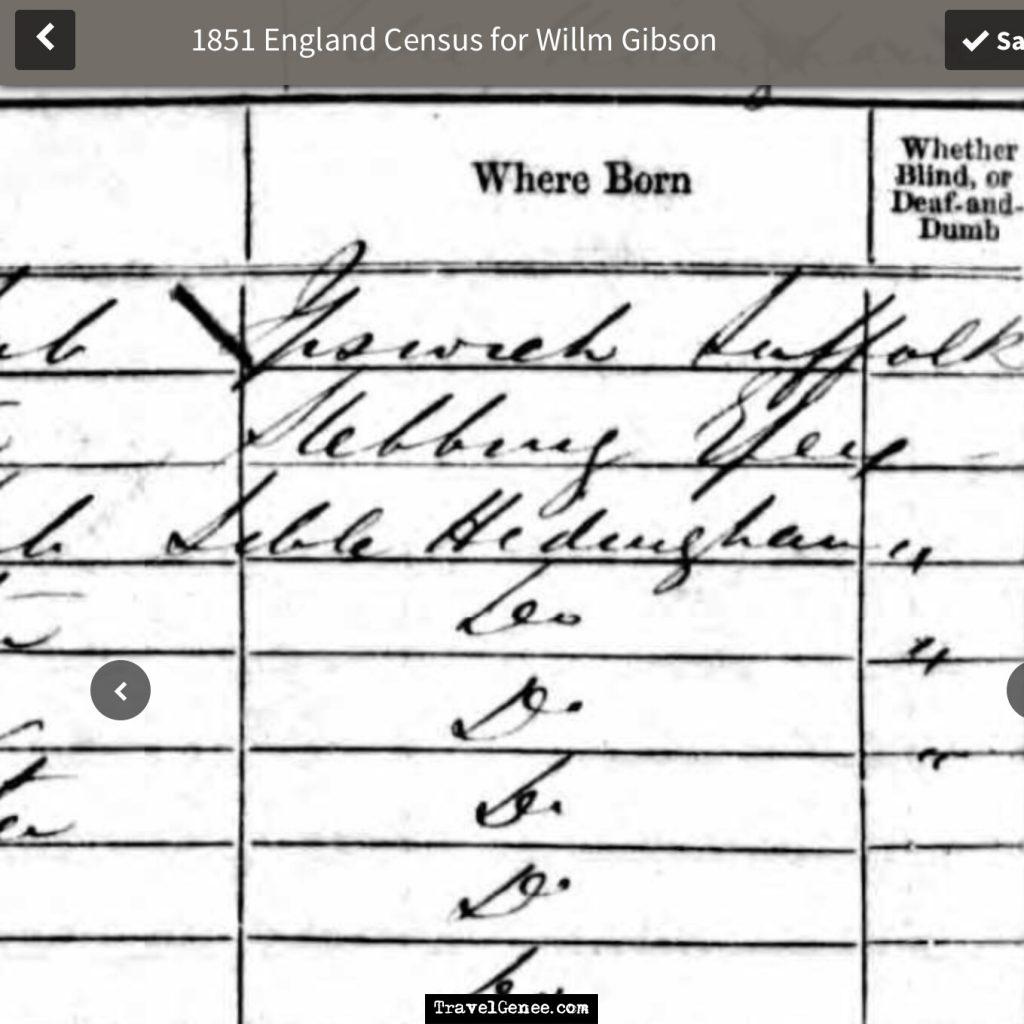 1851 England Census for Willm Gibson
Sa
Where Born
Whether
Blind, or
Deaf-and-
Dumb
Ipswich Suffolk
Stebbing Essex
Sible Hedingham "
Do "
Do "
Do
Do
Do
TravelGenee.com